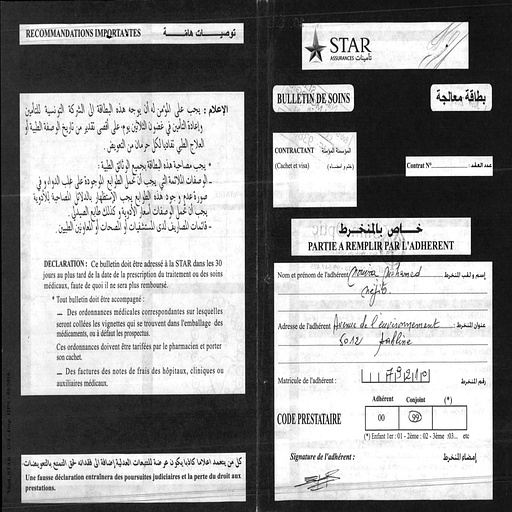 RECOMMANDATIONS IMPORTANTES
توصيـــات هامـــة
الإعلام : يجب على المؤمن له أن يوجه هذه البطاقة الى الشركة التونسية للتأمين
وإعادة التأمين في غضون الثلاثين يوم على أقصى تقدير من تاريخ الوصفة الطبية أو
العلاج الطبي تفاديا لكل حرمان من التعويض.
* يجب مصاحبة هذه البطاقة بجميع الوثائق الطبية :
ـ الوصفات الملائمة التي يجب أن تحمل الطوابع الموجودة على علب الدواء و في
صورة عدم وجود هذه الطوابع يجب الاستظهار بالدلائل المصاحبة للأدوية
يجب أن تحمل الوصفات أسعار الأدوية و كذلك طابع الصيدلي.
DECLARATION : Ce bulletin doit être adressé à la STAR dans les 30
jours au plus tard de la date de la prescription du traitement ou des soins
médicaux, faute de quoi il ne sera plus remboursé.
* Tout bulletin doit être accompagné :
— Des ordonnances médicales correspondantes sur lesquelles
seront collées les vignettes qui se trouvent dans l'emballage des
médicaments, ou à défaut les prospectus.
Ces ordonnances doivent être tarifées par le pharmacien et porter
son cachet.
— Des factures des notes de frais des hôpitaux, cliniques ou
auxiliaires médicaux.
كل من يتعمد اعلاما كاذبا يكون عرضة للتتبعات العدلية إضافة الى فقدانه حق التمتع بالتعويضات
Une fausse déclaration entraînera des poursuites judiciaires et la perte du droit aux
prestations.
STAR
ASSURANCES تأمينات
BULLETIN DE SOINS
بطاقة معالجة
CONTRACTANT
المؤسسة المؤمنة
(Cachet et visa)
(ختم و امضاء)
Contrat N°
عدد العقد
خـــاص بالمنخـرط
PARTIE A REMPLIR PAR L'ADHERENT
Nom et prénom de l'adhérent Mohamed
إسم و لقب المنخرط
Adresse de l'adhérent Avenue de l'environnement
عنوان المنخرط
5012 Sahline
Matricule de l'adhérent :
رقم المنخرط
Adhérent Conjoint (*)
CODE PRESTATAIRE
00 99
(*) Enfant 1er : 01 - 2ème : 02 - 3ème :03... etc
Signature de l'adhérent :
إمضاء المنخرط